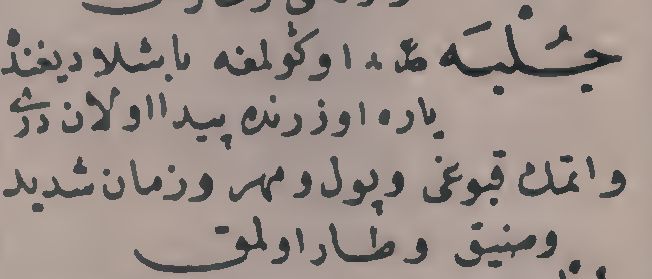 جُلْبَه ط ٨ اوکولمغه باشلادیغند
یاره اوزرنده پیدا اولان دری
واتمك قبوغی وپول ومهر وزمان شدید
وضیق وطار اولمق